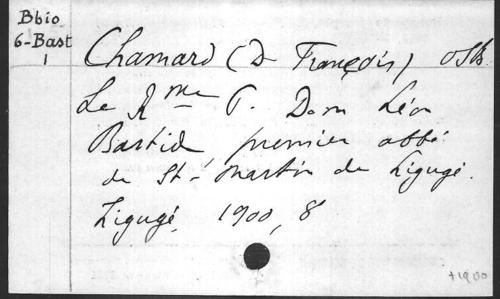 Bbio
6-Bast
1
Chamard (D François) OSB.
Le Rme P. Dom Léon
Bastide premier abbé
de St-Martin de Ligugé.
Ligugé, 1900, 8
+1900